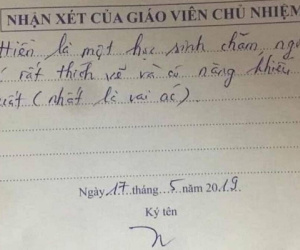 NHẬN XÉT CỦA GIÁO VIÊN CHỦ NHIỆM
Hiền là một học sinh chăm, ng
rất thích vẽ và có năng khiếu
(nhất là vai ác).
Ngày 17 tháng 5 năm 2019
Ký tên